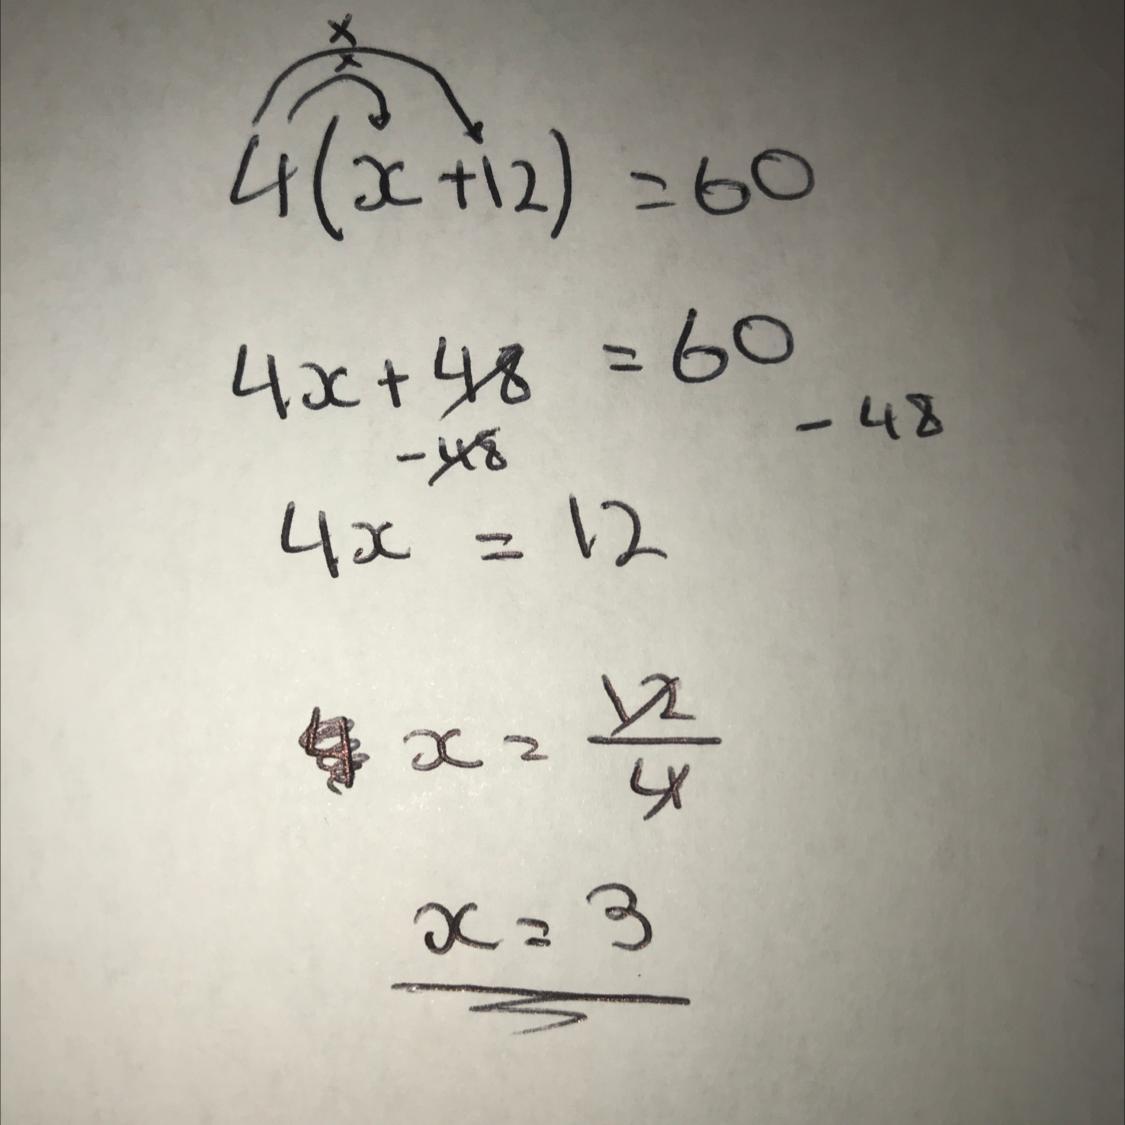 × ×
4(x+12) = 60
4x + 48 = 60
-48 -48
4x = 12
x = 12/4
x = 3